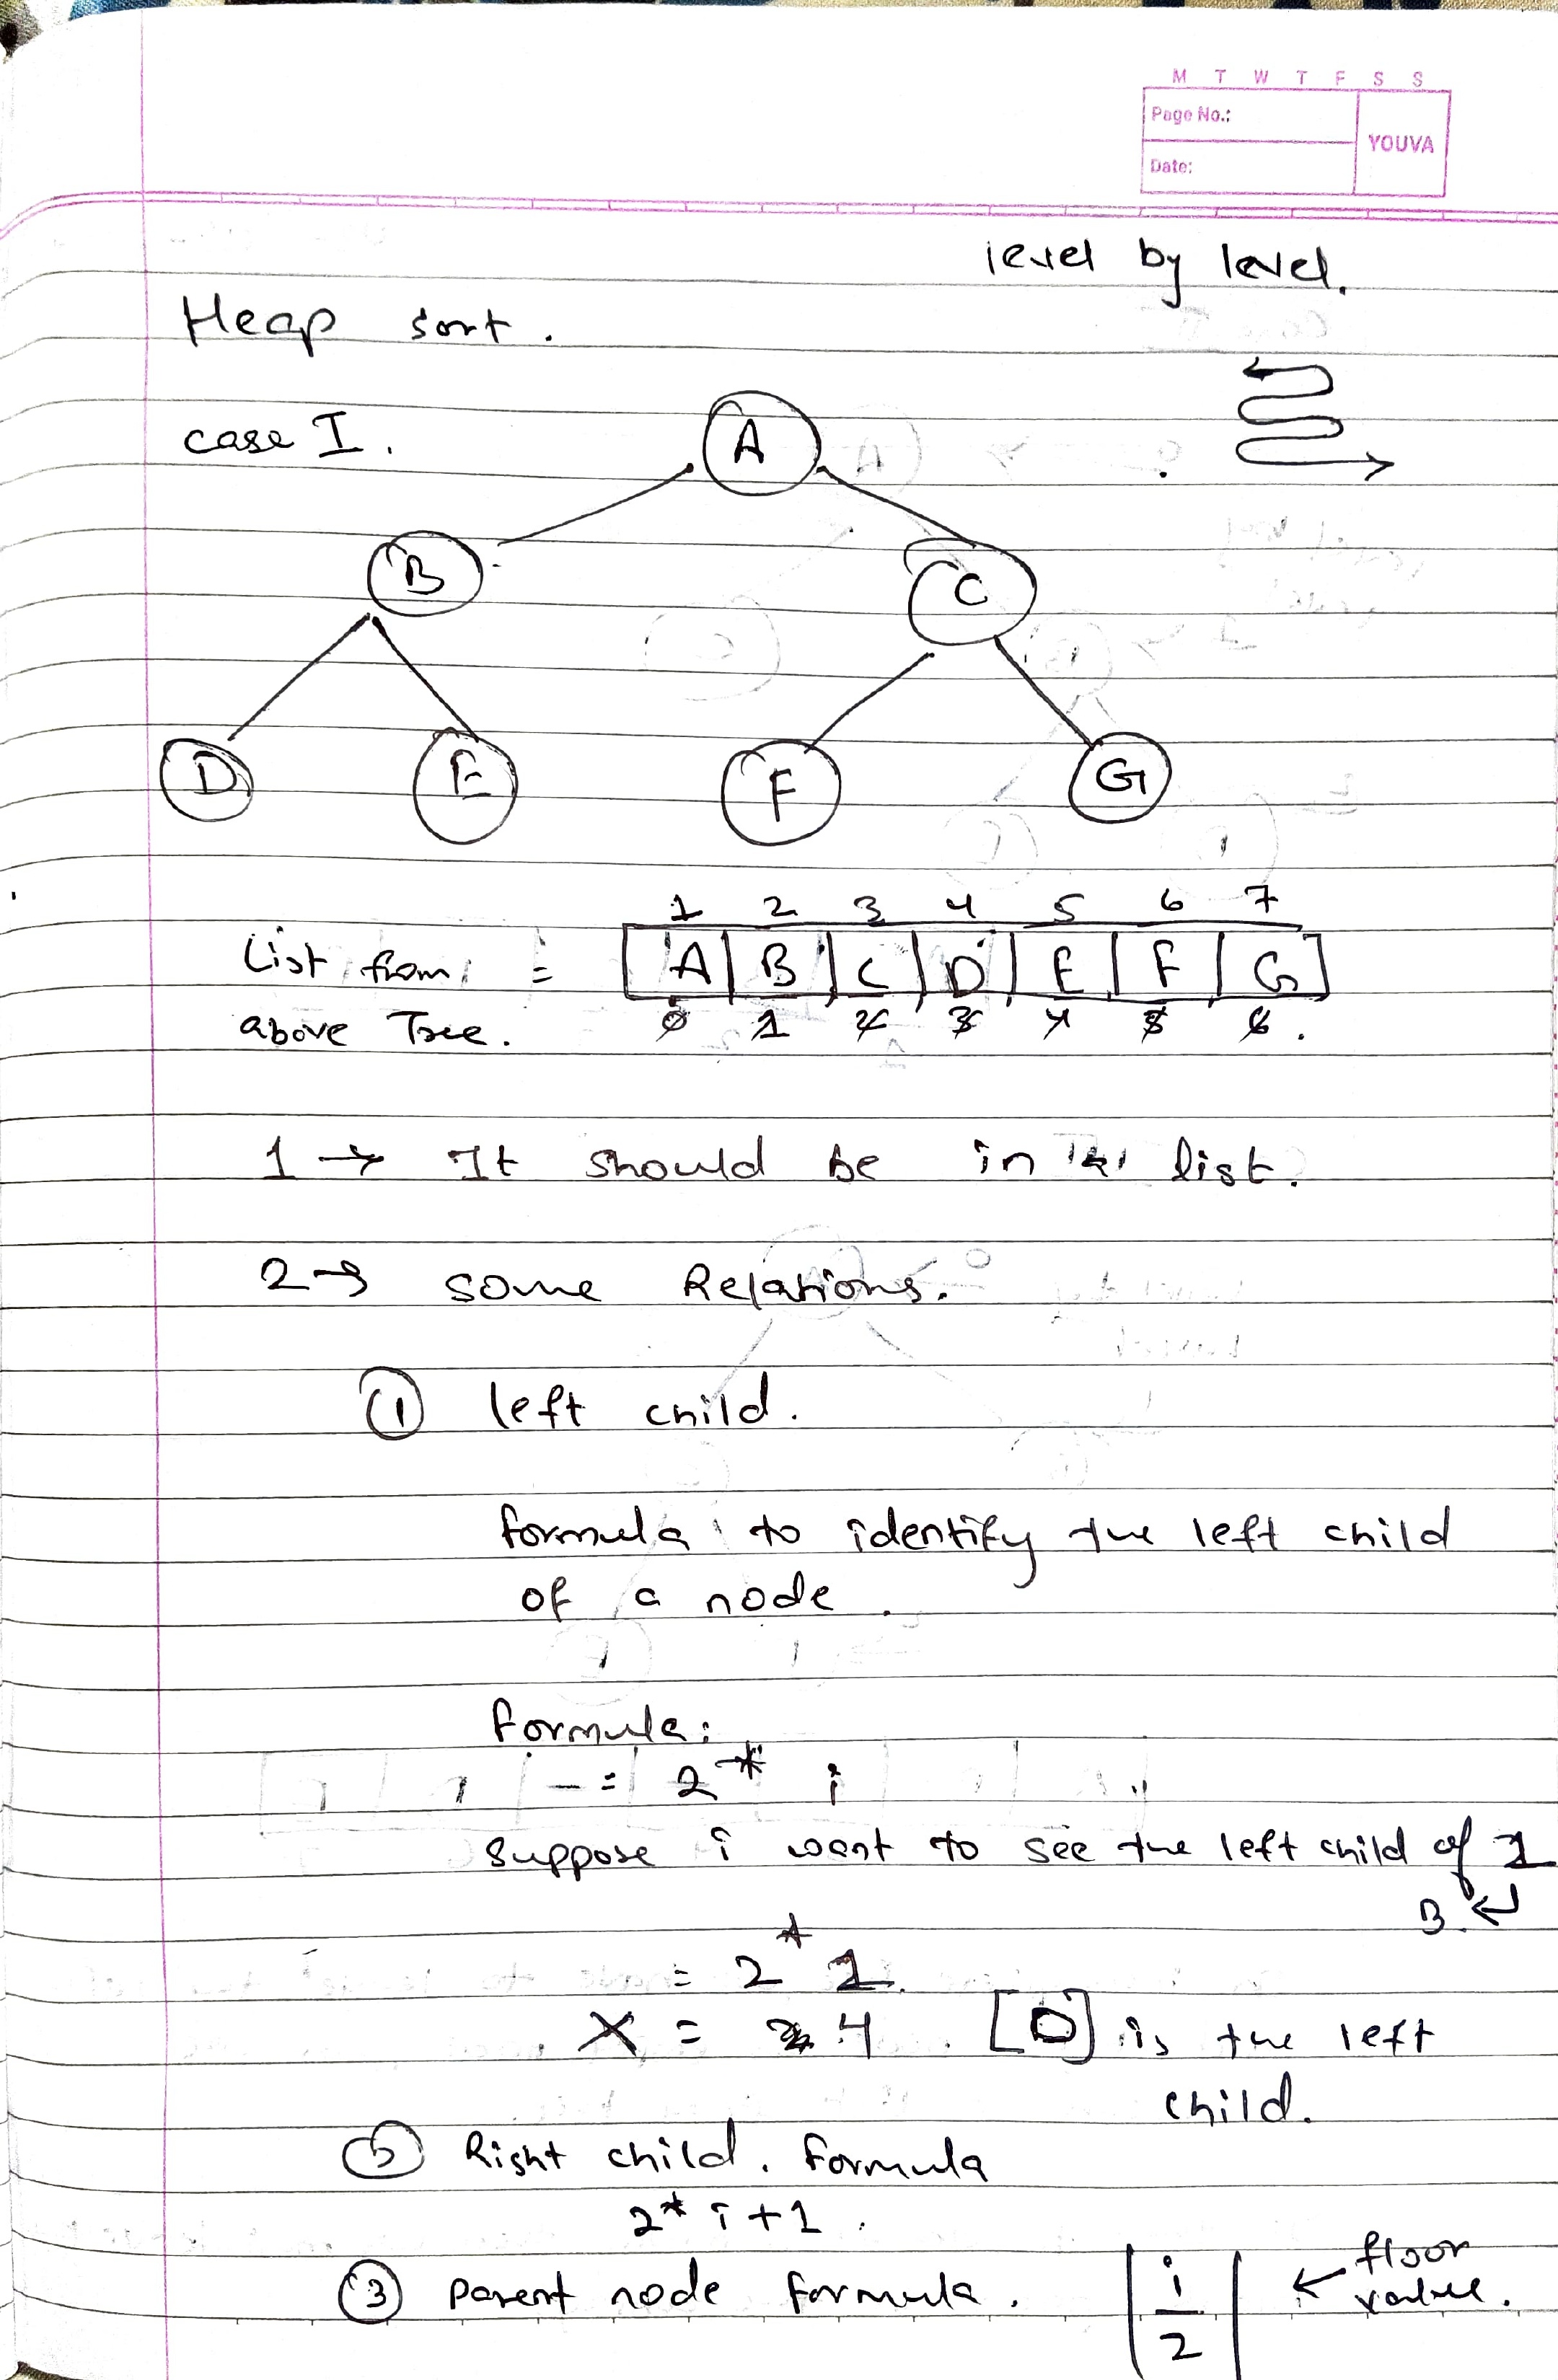 M T W T F S S
Page No.:
YOUVA
Date:
level by level.
Heap sort.
case I.
A
B
C
D
E
F
G
1 2 3 4 5 6 7
List from = [A|B|C|D|E|F|G]
above Tree. 0 1 2 3 4 5 6.
1 → It should be in list.
2 → some Relations.
① left child.
formula to identify the left child
of a node.
formula:
= 2 * i
suppose i want to see the left child of 1
B ↵
= 2 * 1
X = 4. [D] is the left
child.
② Right child. formula
2 * i + 1.
③ parent node formula. |i/2| ← floor
value.